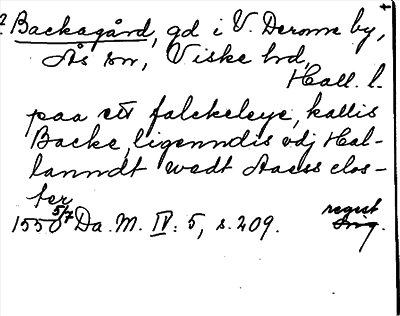 Backagård, gd i V. Derome by,
Ås sn, Viske hd,
Hall. l.
paa ett falckeleye, kallis
Backe, ligenndis vdj Hal-
lanndt wedt Aaess clos-
ter
1550 5/7 Da. M. IV: 5, s. 209. regist